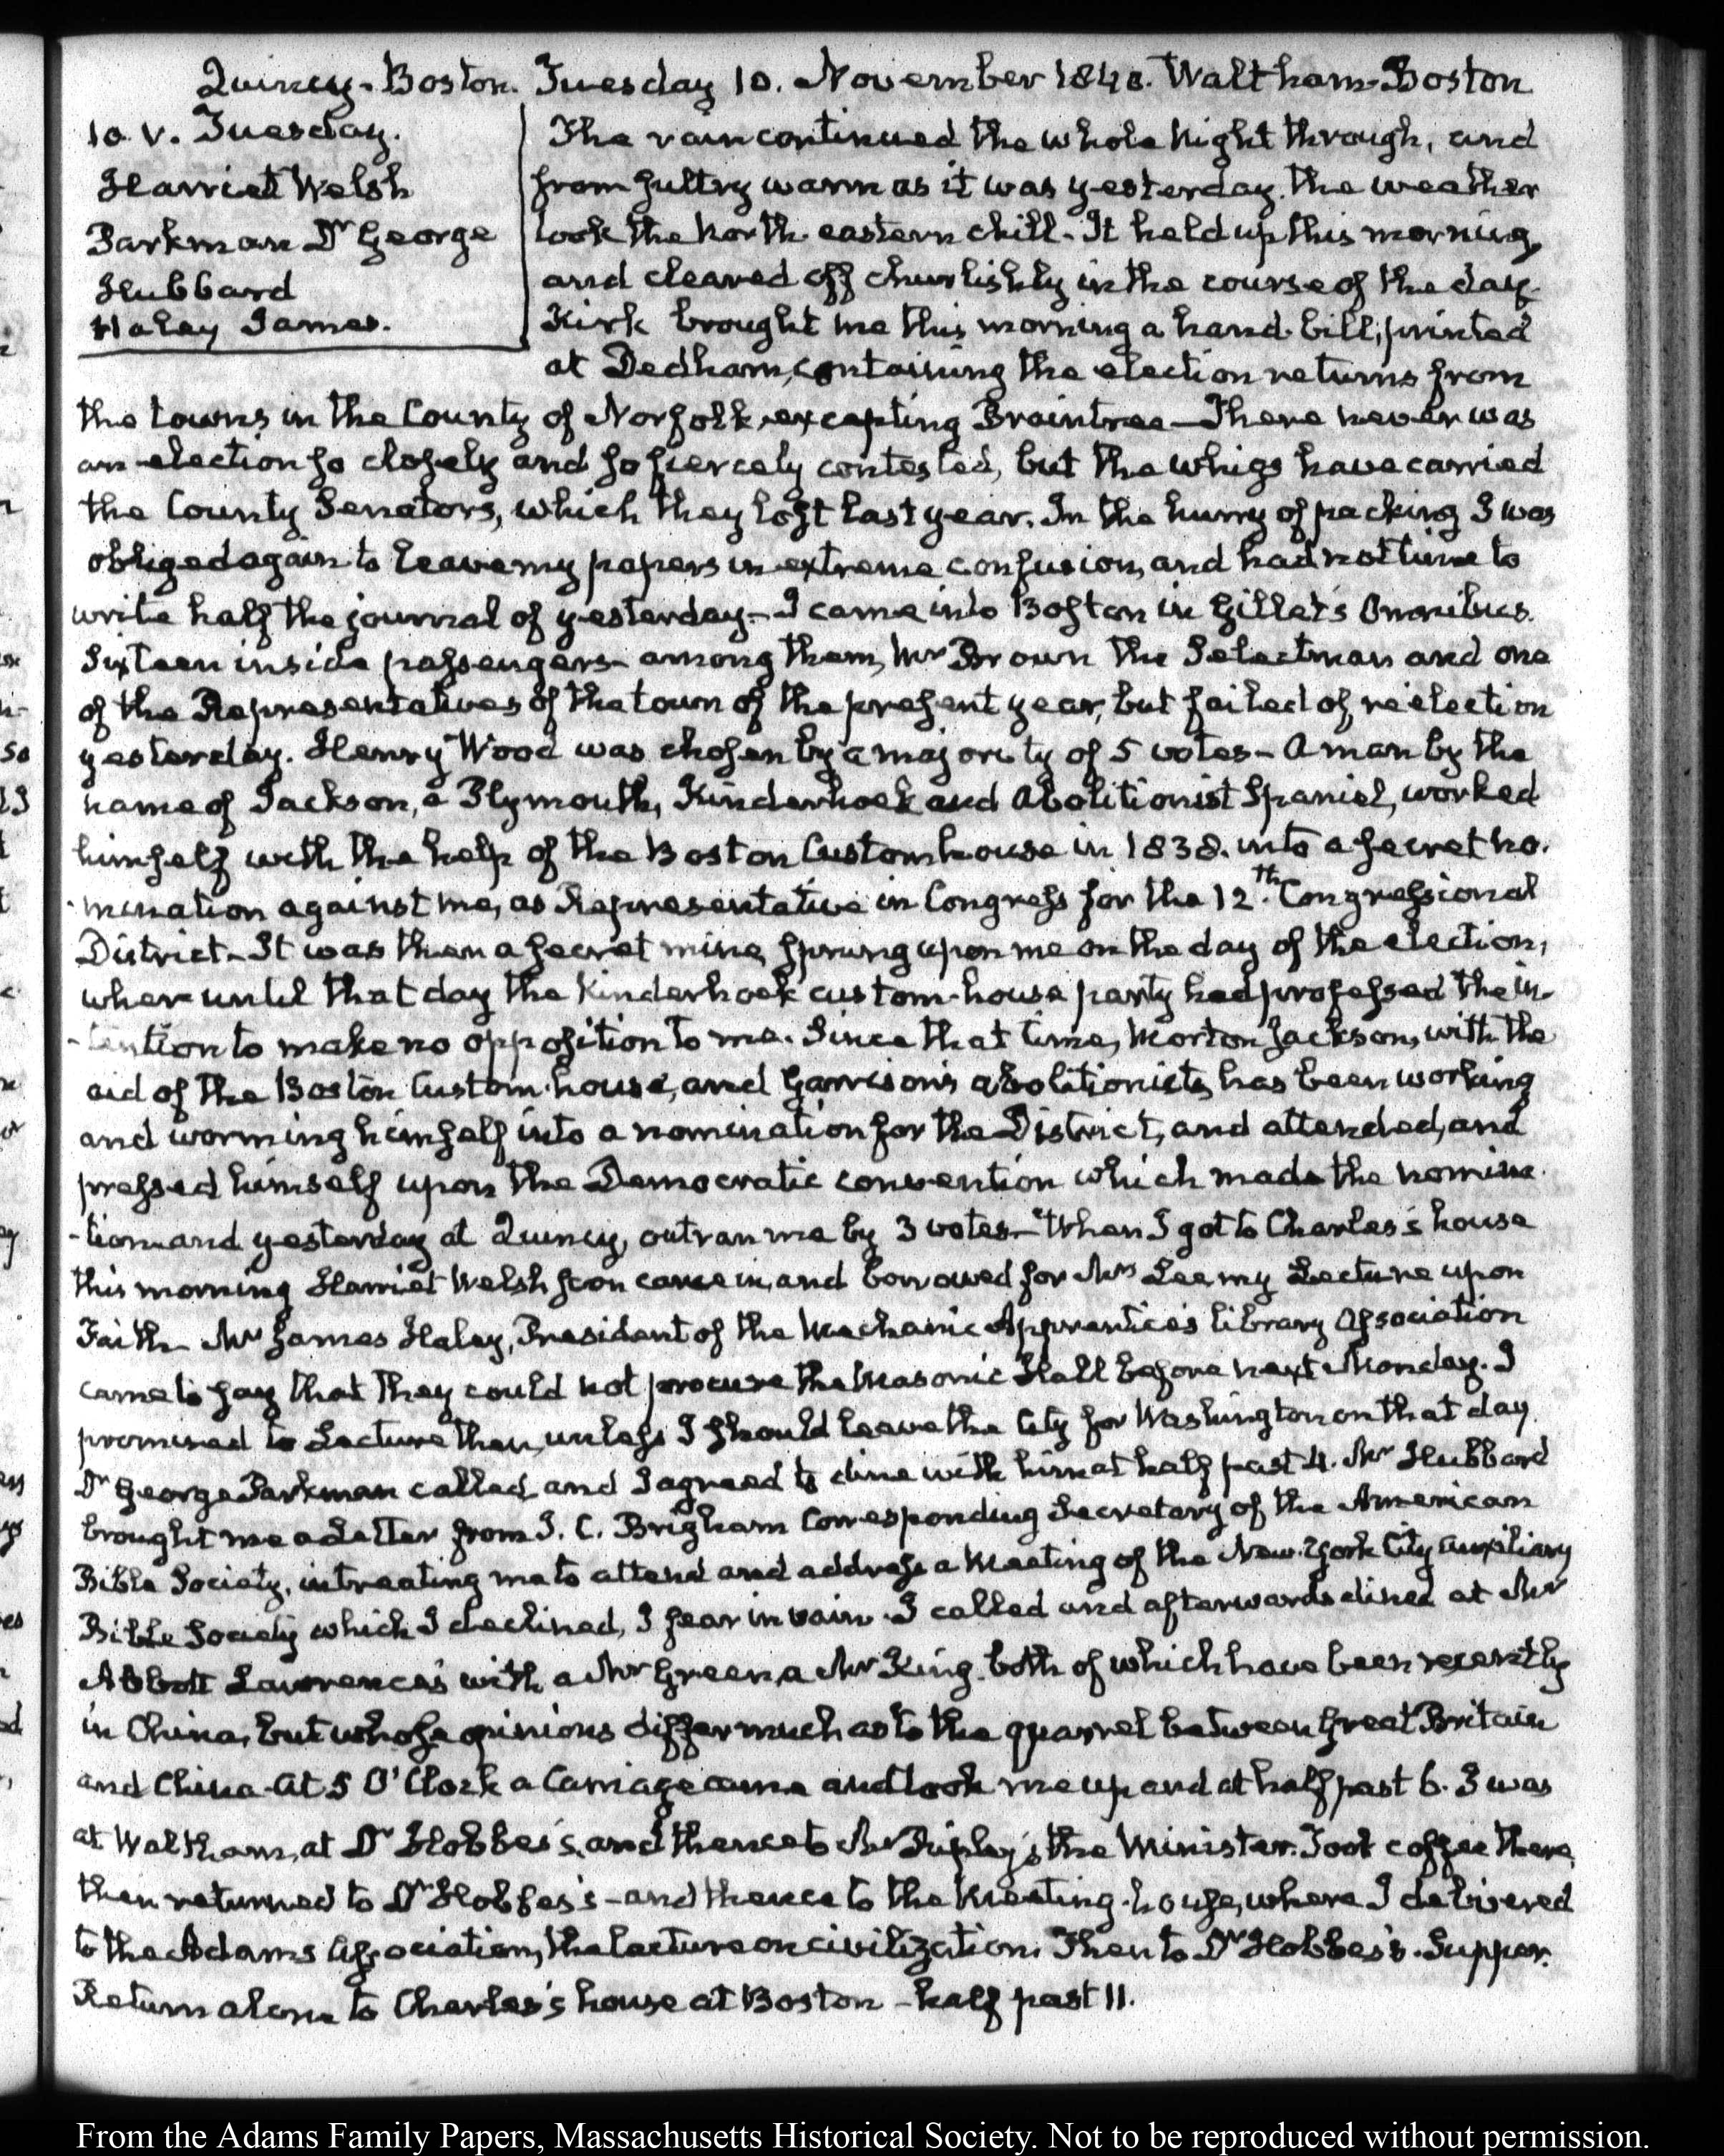 Quincy - Boston. Tuesday 10. November 1840. Waltham - Boston
10. V. Tuesday.
Harriet Welsh
Parkman Dr. George
Hubbard
Haley James.
The rain continued the whole Night through, and
from sultry warm as it was yesterday, the weather
took the North eastern chill - It held up this morning,
and cleared off churlishly in the course of the day.
Kirk brought me this morning a hand-bill, printed
at Dedham, containing the election returns from
the towns in the County of Norfolk, excepting Braintree — There never was
an election so closely and so fiercely contested, but the whigs have carried
the County Senators, which they lost last year. In the hurry of packing I was
obliged again to leave my papers in extreme confusion, and had not time to
write half the journal of yesterday - I came into Boston in Gillet's Omnibus.
Sixteen inside passengers - among them, Mr Brown the Selectman and one
of the Representatives of the town of the present year, but failed of reelection
yesterday. Henry Wood was chosen by a majority of 5 votes - A man by the
name of Jackson, a Plymouth, Kinderhook and Abolitionist Spaniel, worked
himself with the help of the Boston Customhouse in 1838. into a secret no-
-mination against me, as Representative in Congress for the 12th. Congressional
District - It was then a secret mine, sprung upon me on the day of the election,
when until that day the Kinderhook custom-house party had professed the in-
-tention to make no opposition to me. Since that time, Morton Jackson, with the
aid of the Boston Custom-house, and Garrison's abolitionists, has been working
and worming himself into a nomination for the District, and attended, and
pressed himself upon the Democratic convention which made the nomina-
-tion and yesterday at Quincy, outran me by 3 votes - When I got to Charles's house
this morning Harriet Welsh soon came in, and borrowed for Mrs Lee my Lecture upon
Faith - Mr James Haley, President of the Mechanic Apprentices library Association
came to say that they could not procure the Masonic Hall before next Monday. I
promised to Lecture then, unless I should leave the City for Washington on that day.
Dr George Parkman called, and I agreed to dine with him at half past 4. Mr Hubbard
brought me a Letter from J. C. Brigham Corresponding Secretary of the American
Bible Society, intreating me to attend and address a Meeting of the New-York City auxiliary
Bible Society which I declined, I fear in vain. I called and afterwards dined at Mr
Abbott Lawrence's with a Mr Green, a Mr King, both of which have been recently
in China, but whose opinions differ much as to the quarrel between Great Britain
and China - At 5 O'Clock a Carriage came and took me up and at half past 6. I was
at Waltham, at Dr Hobbes's, and thence to Mr Ripley's the Minister. Took coffee there,
then returned to Dr Hobbes's - and thence to the Meeting-house, where I delivered
to the Adams Association, the lecture on civilization. Then to Dr Hobbes's. Supper.
Return alone to Charles's house at Boston - half past 11.
From the Adams Family Papers, Massachusetts Historical Society. Not to be reproduced without permission.